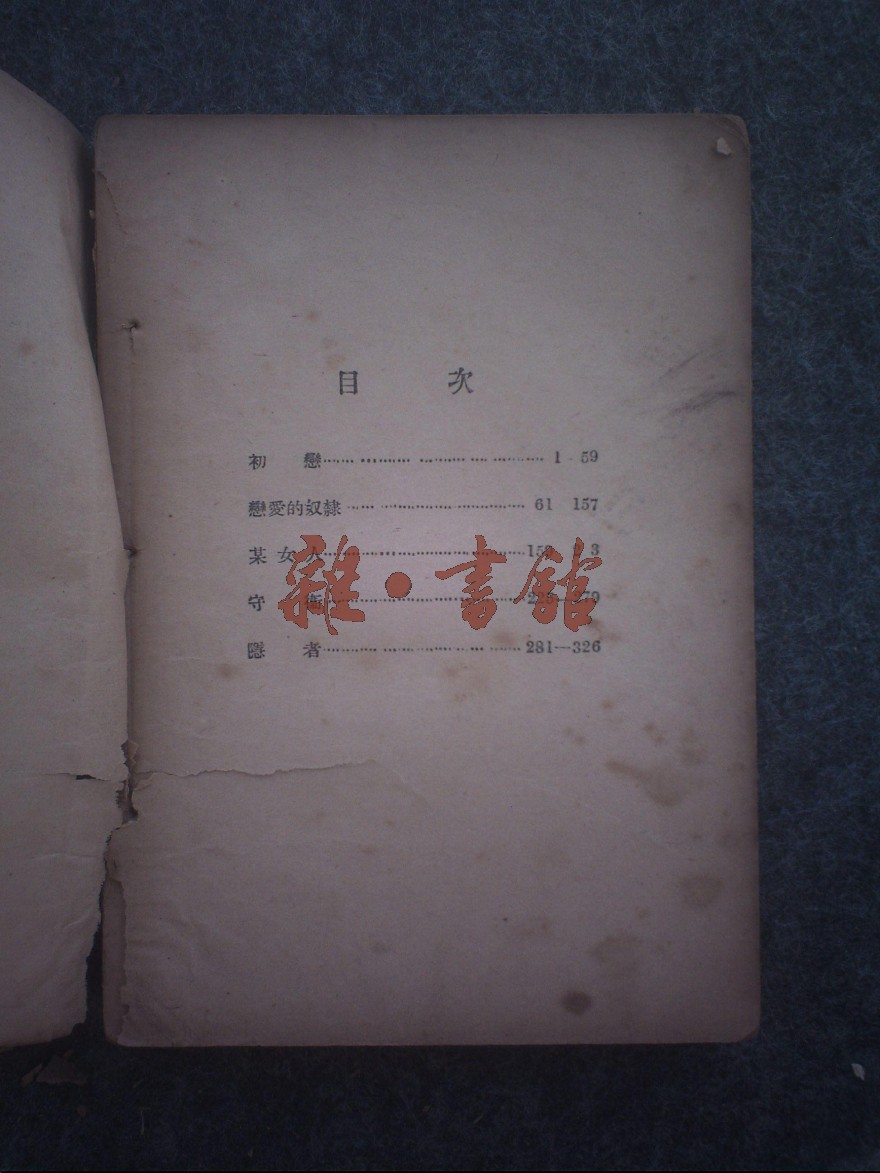 目 次
初 戀…………………… 1-59
戀愛的奴隸…………………… 61 157
某女人……………………
守 衛……………………
隱 者……………………281—326
雜·書館